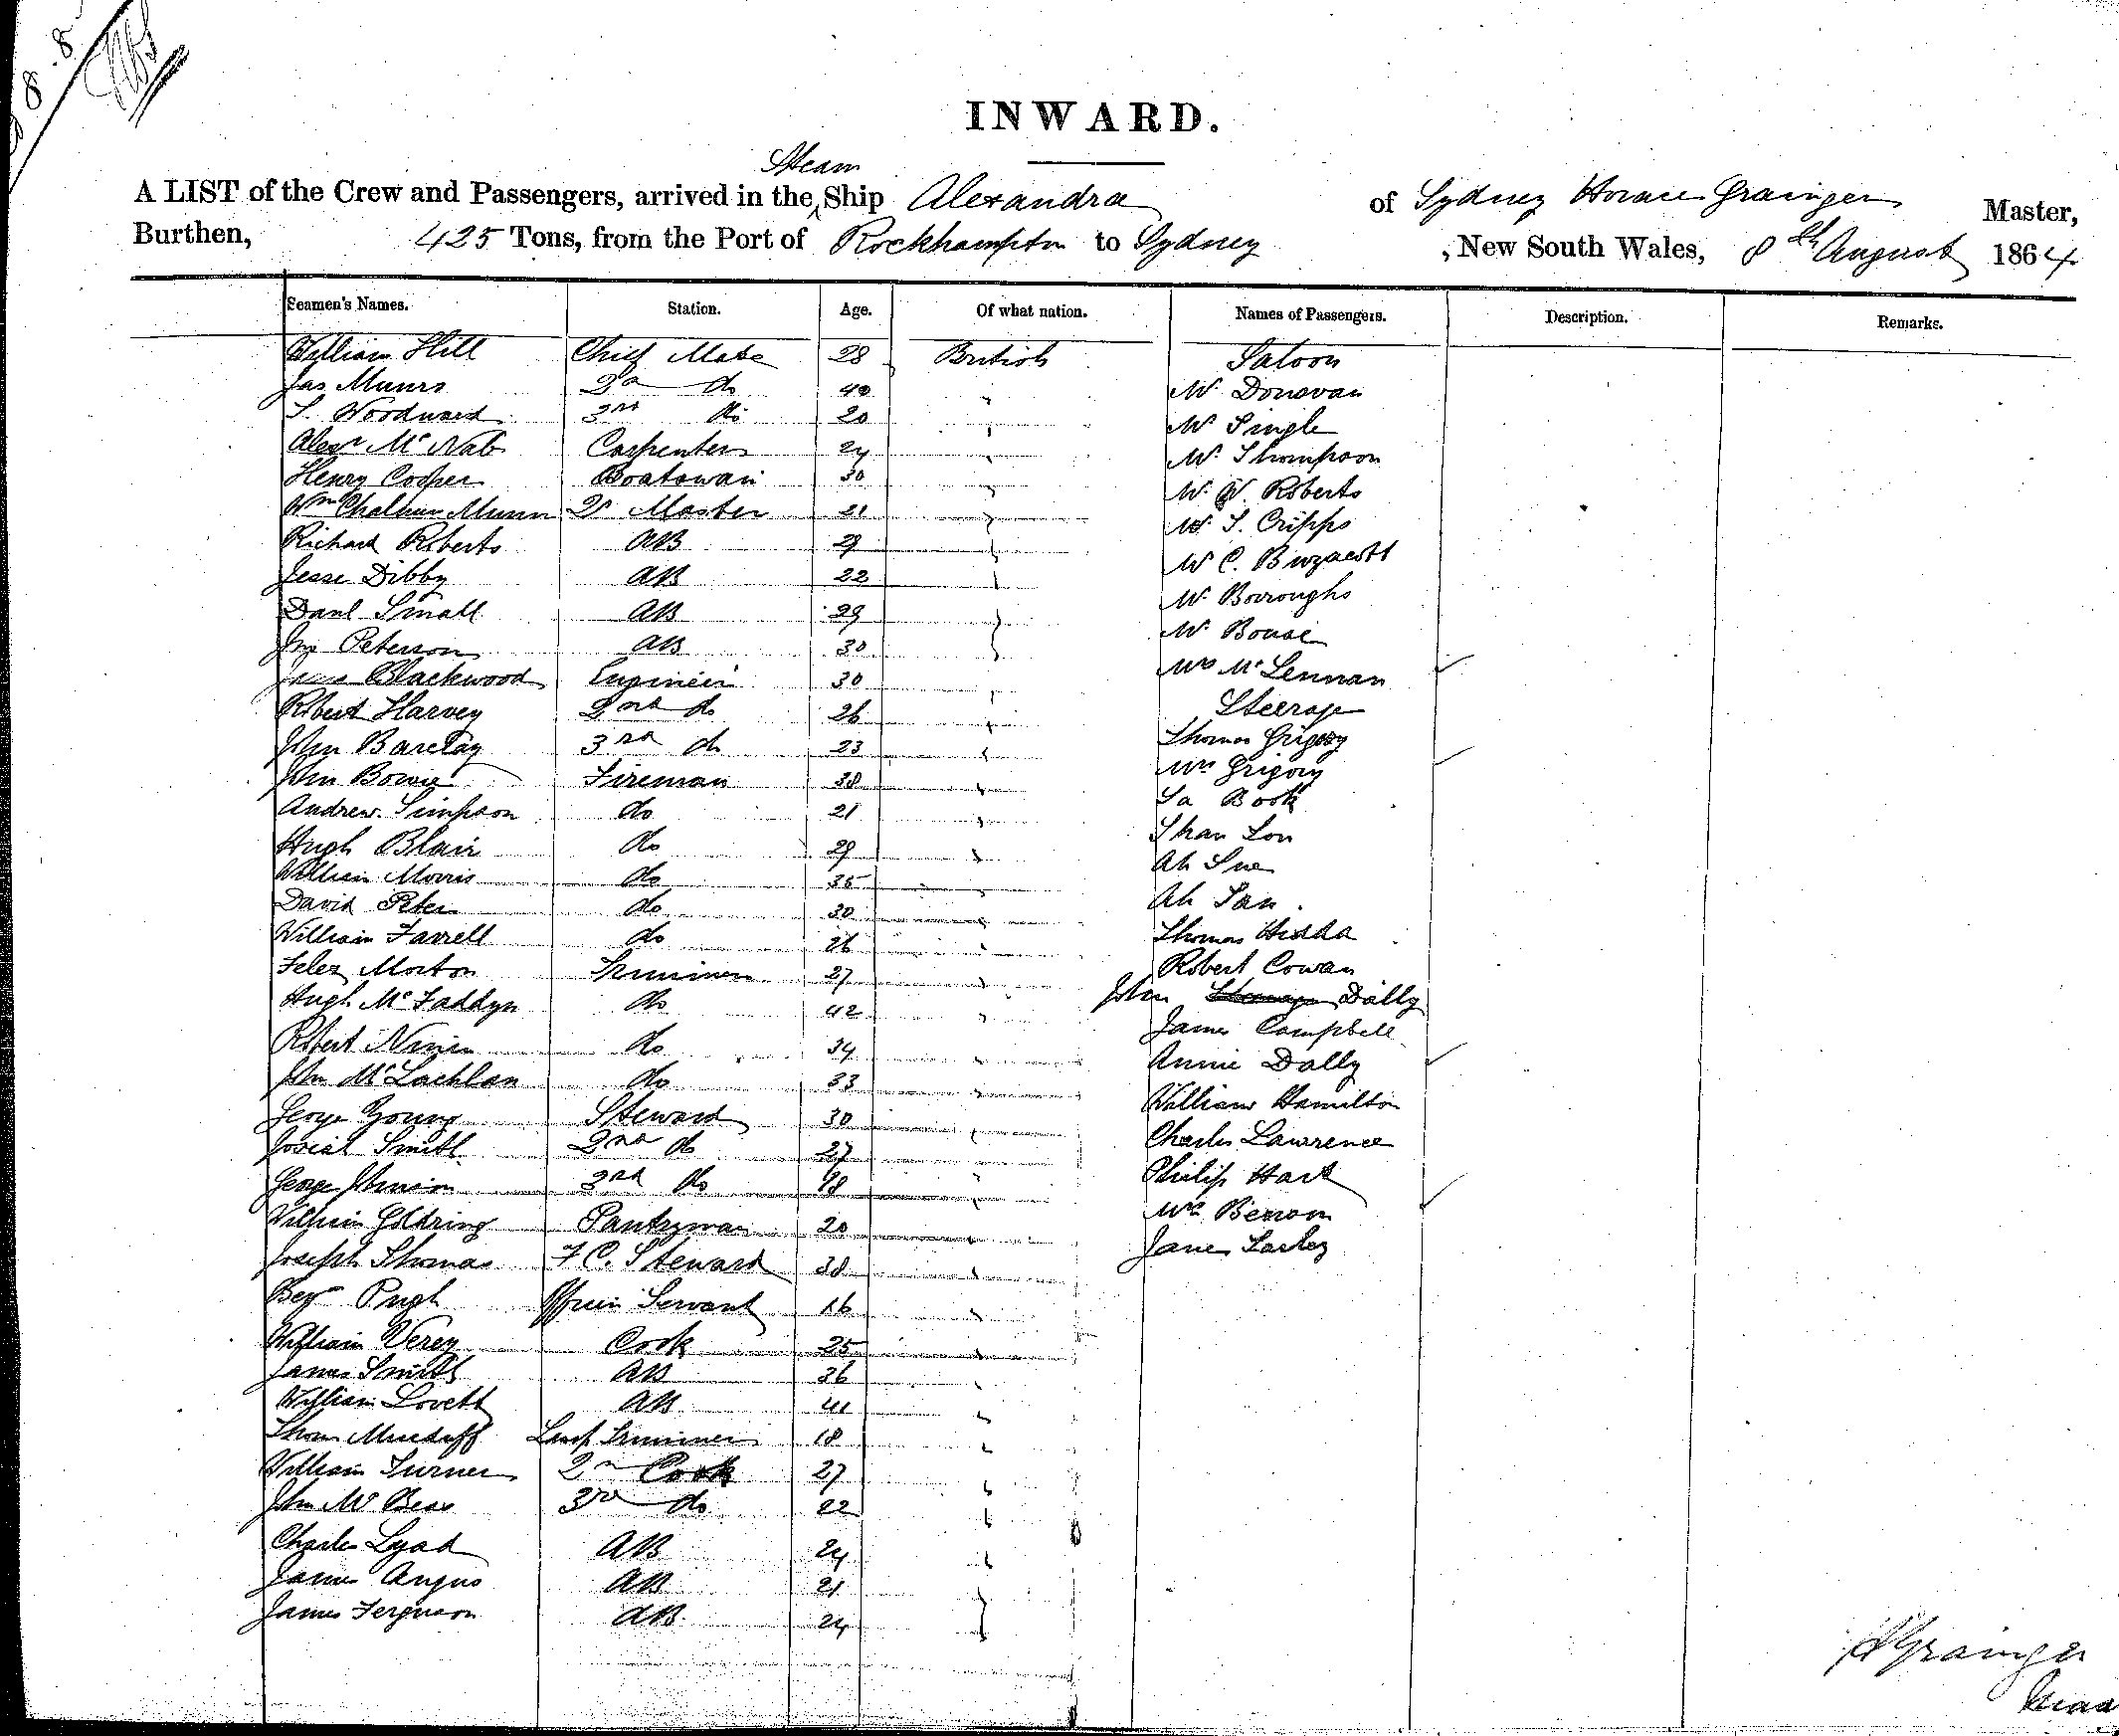 8 . 8
INWARD.
Steam
A LIST of the Crew and Passengers, arrived in the Ship Alexandra of Sydney Horace Grainger Master,
Burthen, 425 Tons, from the Port of Rockhampton to Sydney , New South Wales, 8th August 1864
Seamen's Names. Station. Age. Of what nation. Names of Passengers. Description. Remarks.
William Hill Chief Mate 28 British Saloon
Jas Munro 2nd do 40 " Mr Donovan
S. Woodward 3rd do 20 " Mr Single
Alexr McNab Carpenter 24 " Mr Thompson
Henry Cooper Boatswain 30 " Mr W. Roberts
Wm Chalmer Munn Qr Master 21 " Mr S. Cripps
Richard Roberts AB 29 " Mr C. Buzacott
Jesse Dibby AB 22 " Mr Borroughs
Danl Small AB 29 " Mr Bouse
Jno Peterson AB 30 " Mrs McLennan
Blackwood Engineer 30 " Steerage
Robert Harvey 2nd do 26 " Thomas Grigory
John Barclay 3rd do 23 " Mrs Grigory
John Bowie Fireman 38 " Sa Book
Andrew Simpson do 21 " Shan Lon
Hugh Blair do 29 " Ah Sue
William Morris do 35 " Ah San
David Peter do 30 " Thomas Hidda
William Farrell do 26 " Robert Cowan
Felex Morton Trimmer 27 " John Dally
Hugh McFaddyn do 42 " James Campbell
Robert Niven do 34 " Annie Dally
John McLachlan do 33 " William Hamilton
George Young Steward 30 " Charles Lawrence
Josiah Smith 2nd do 27 " Philip Hart
George Johnson 3rd do 48 " Mrs Benson
William Goldring Pantryman 20 " Jane
Joseph Thomas F C. Steward 38 "
Benj Pugh Officers Servant 16 "
William Verey Cook 25 "
James Smith AB 36 "
William Lovett AB 41 "
Thos Lamp Trimmer 18 "
William Turner 2nd Cook 27 "
John McBean 3rd do 22 "
Charles Lyad AB 24 "
James Angus AB 21 "
James Ferguson AB 24 "
Grainger